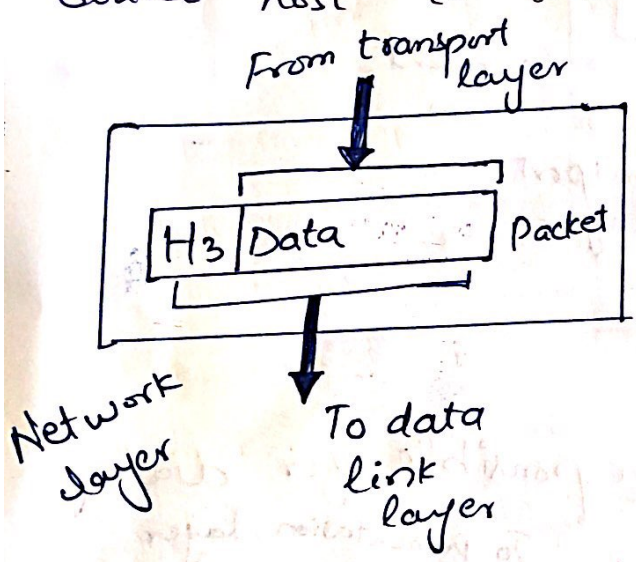 From transport
layer
H3 Data
Packet
Network
layer
To data
link
layer